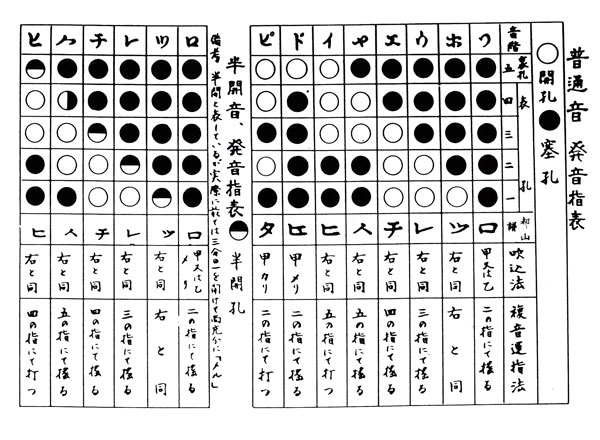 普通音 発音指表
○ 開孔 ● 塞孔
音階 裏孔 五 表 四 三 孔 二 一 都山譜 吹込法 複音運指法
フ ● ● ● ● ● ロ 甲又は乙 二の指にて る
ホ ● ● ● ● ○ ツ 右と同 右と同
ウ ● ● ● ○ ○ レ 右と同 三の指にて る
エ ● ● ○ ○ ○ チ 右と同 四の指にて る
ヤ ● ○ ○ ● ● ハ 右と同 五の指にて る
イ ○ ○ ○ ● ● ヒ 右と同 五の指にて打つ
ド ○ ● ● ● ● 甲メリ 二の指にて る
ピ ○ ○ ● ○ ● タ 甲カリ 二の指にて打つ
半開音、発音指表 半開孔
備考 半開と表しているが実際に於ては三分の一を開けて尚充分に「メル」
ロ ● ● ● ● ● ロ 甲又は乙メリ 二の指にて る
ツ ● ● ● ● ツ 右と同 右と同
レ ● ● ● ○ レ 右と同 三の指にて る
チ ● ● ○ ○ チ 右と同 四の指にて る
ハ ● ○ ○ ● ハ 右と同 五の指にて る
ヒ ○ ○ ● ● ヒ 右と同 四の指にて打つ